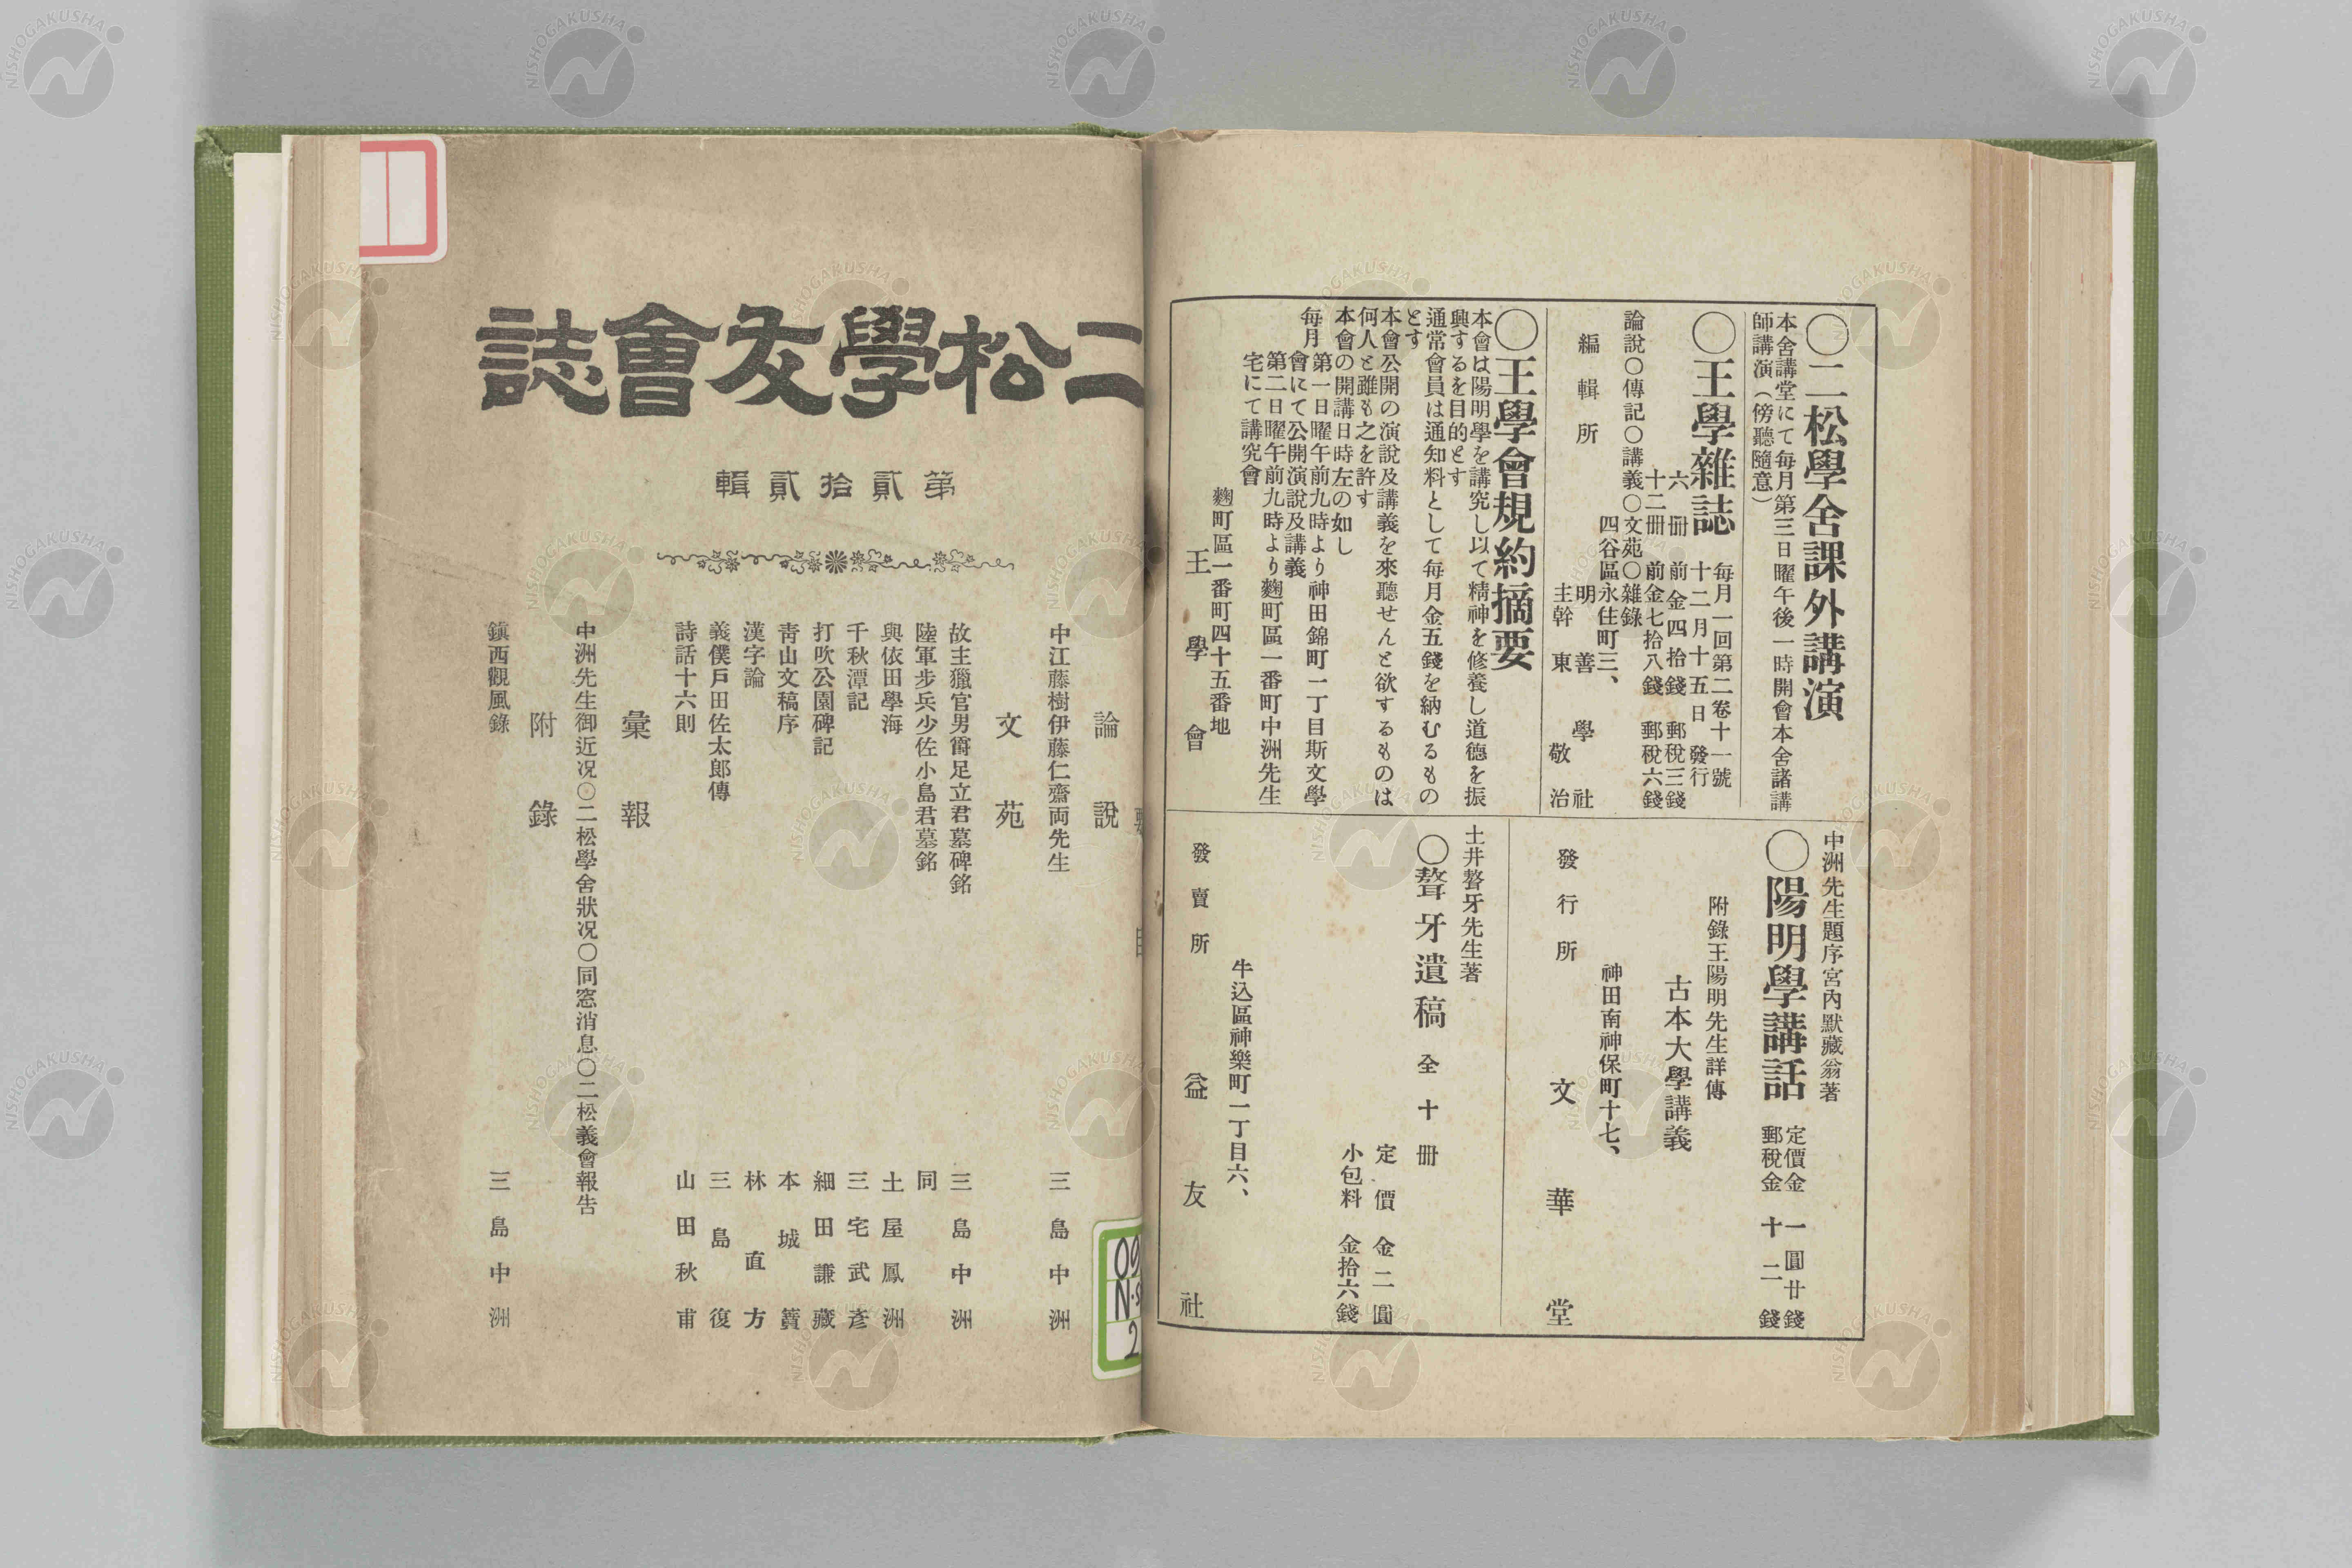 〇二松學舍課外講演
本舍講堂にて每月第三日曜午後一時開會本舍諸講
師講演（傍聽隨意）
〇王學雜誌
每月一回第二卷十一號
十二月十五日發行
六冊　前金四拾錢　郵稅三錢
十二冊　前金七拾八錢　郵稅六錢
論說〇傳記〇講義〇文苑〇雜錄
四谷區永住町三、
編輯所　明善學社
主幹　東敬治
〇王學會規約摘要
本會は陽明學を講究し以て精神を修養し道德を振
興するを目的とす
通常會員は通知料として每月金五錢を納むるもの
とす
本會公開の演說及講義を來聽せんと欲するものは
何人と雖も之を許す
本會の開講日時左の如し
每月　第一日曜午前九時より神田錦町一丁目斯文學
會にて公開演說及講義
第二日曜午前九時より麴町區一番町中洲先生
宅にて講究會
麴町區一番町四十五番地
王學會
中洲先生題序宮內默藏翁著
〇陽明學講話
定價金一圓廿錢
郵稅金十二錢
附錄王陽明先生詳傳
古本大學講義
神田南神保町十七、
發行所　文華堂
土井聱牙先生著
〇聱牙遺稿　全十冊
定價金二圓
小包料金拾六錢
牛込區神樂町一丁目六、
發賣所　益友社
二松學友會誌
第貳拾貳輯
論說
中江藤樹伊藤仁齋両先生　三島中洲
文苑
故主獵官男爵足立君墓碑銘　三島中洲
陸軍步兵少佐小島君墓銘　同
與依田學海　土屋鳳洲
千秋潭記　三宅武彥
打吹公園碑記　細田謙藏
靑山文稿序　本城簣
漢字論　林直方
義僕戶田佐太郎傳　三島復
詩話十六則　山田秋甫
彙報
中洲先生御近况〇二松學舍狀况〇同窓消息〇二松義會報告
附錄
鎭西觀風錄　三島中洲
09
N-S
2
NISHOGAKUSHA